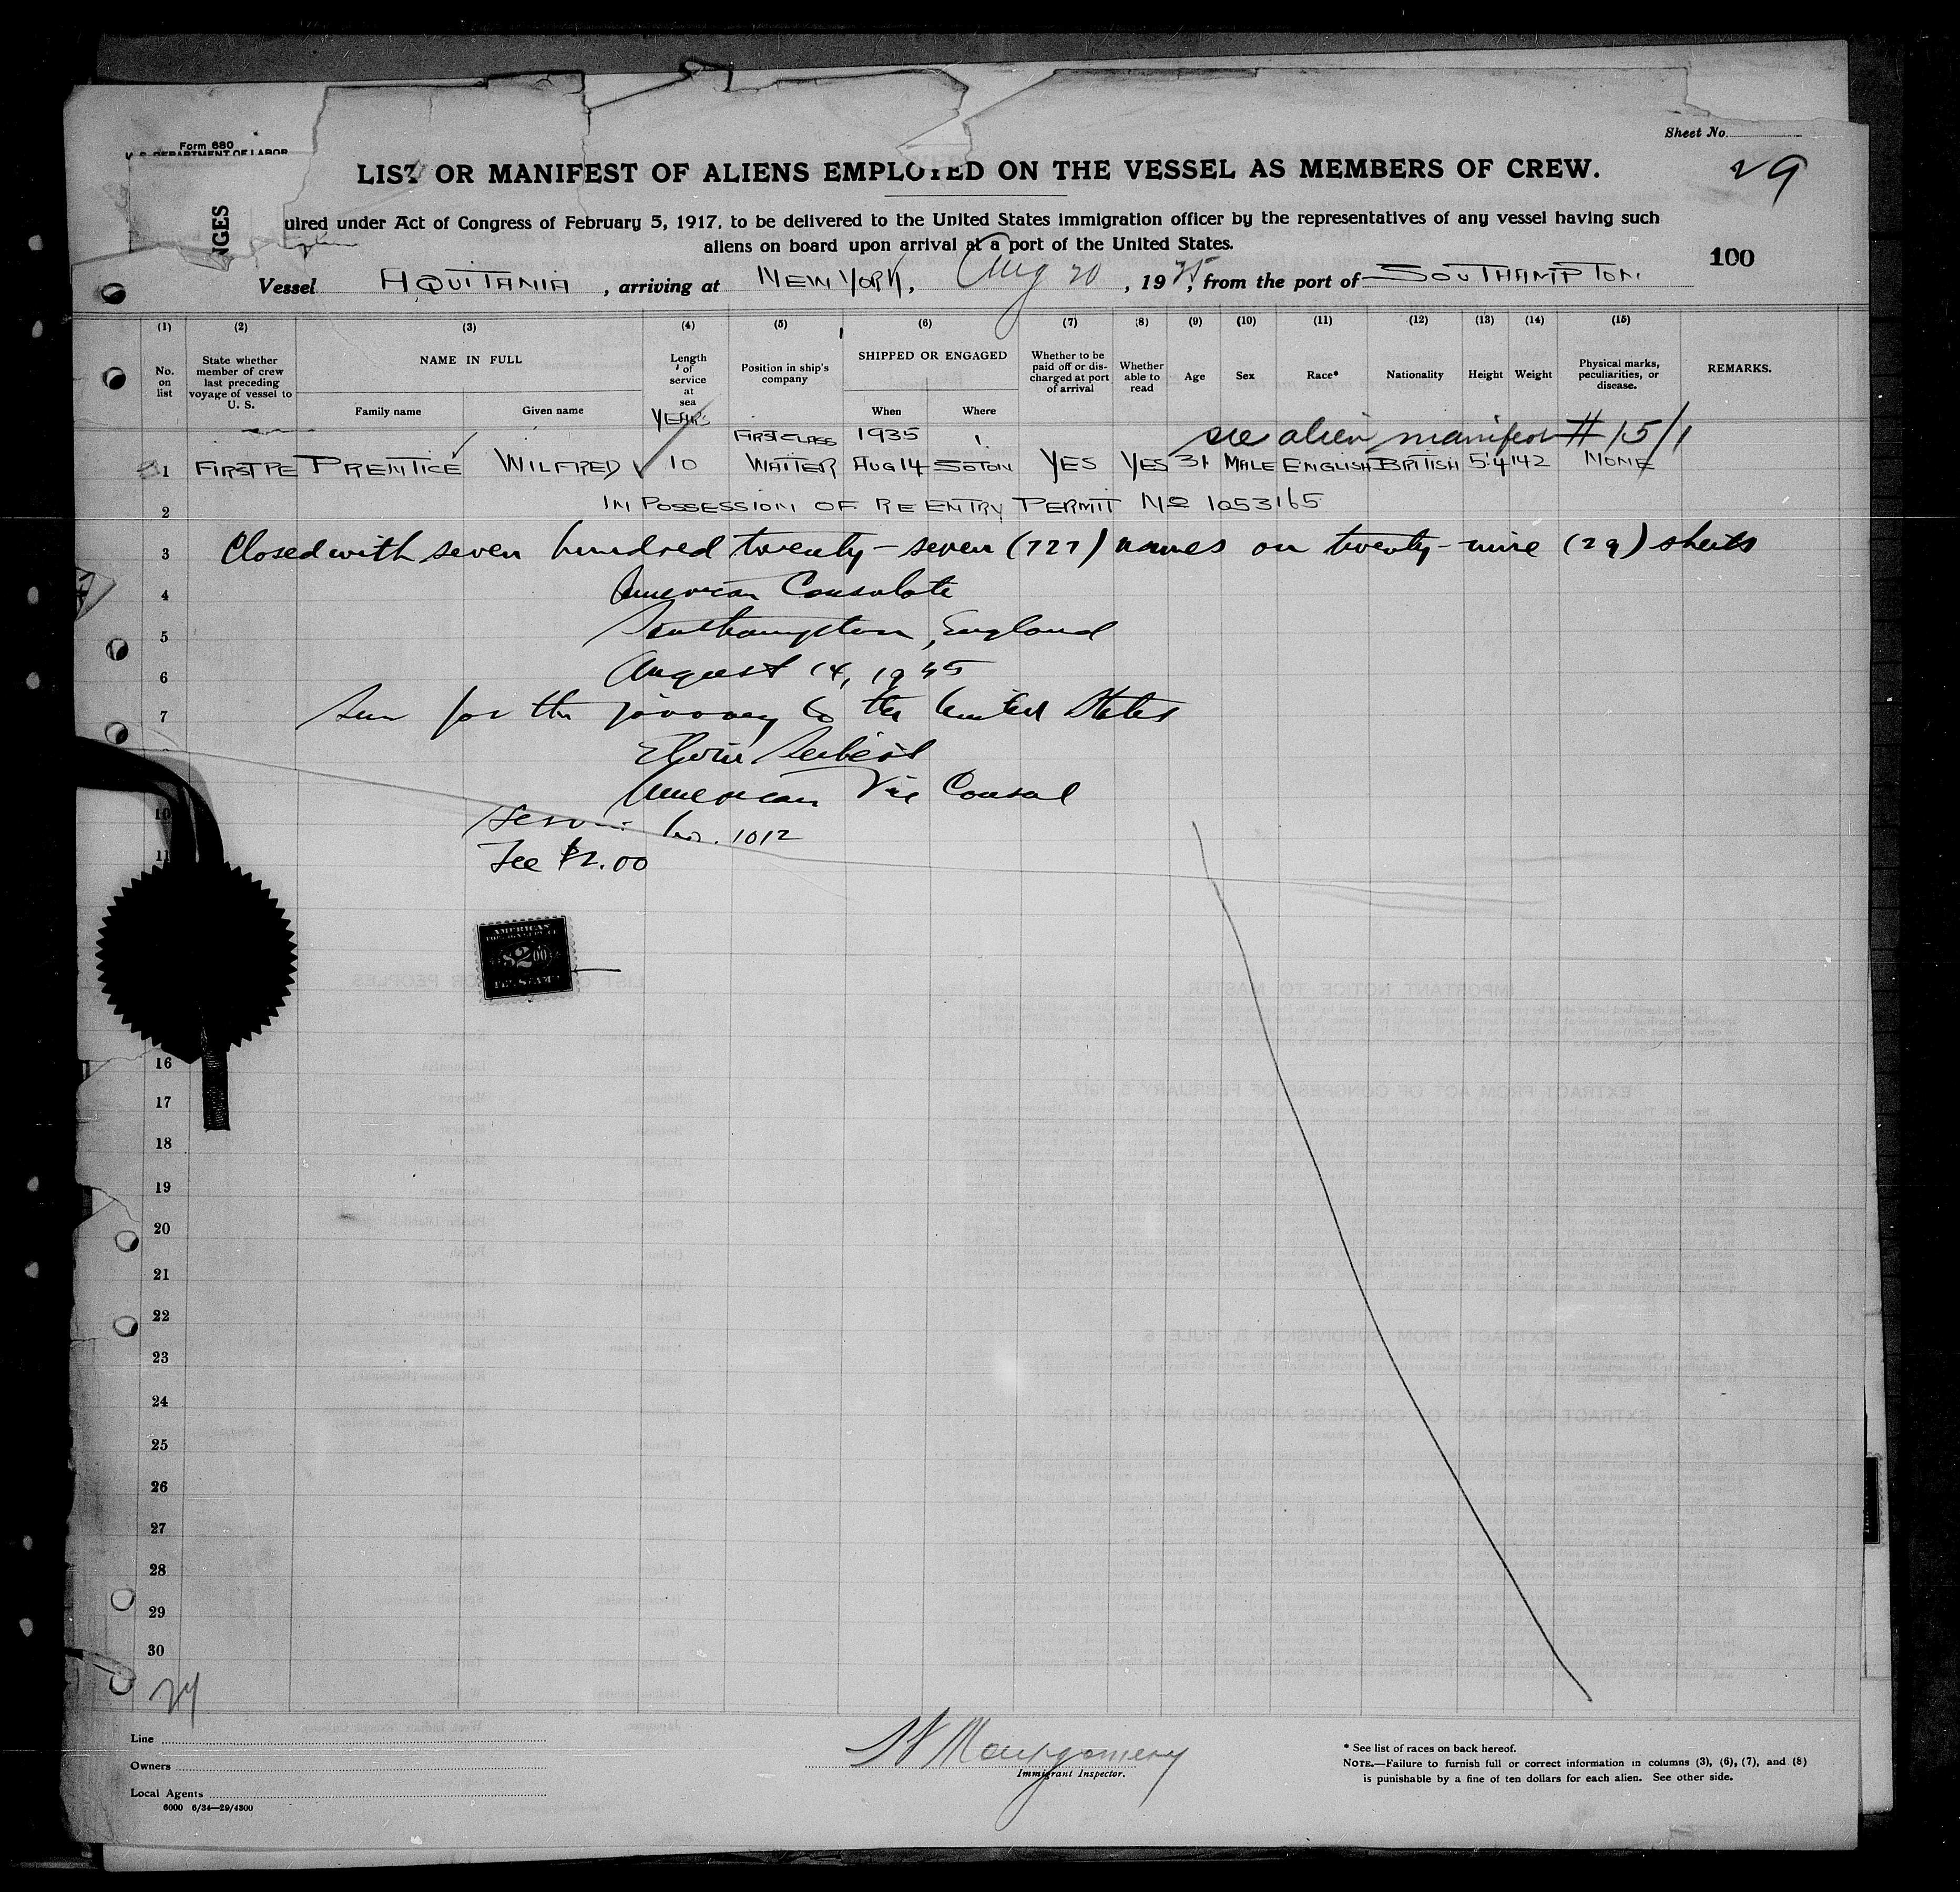 Form 680
U. S. DEPARTMENT OF LABOR
Sheet No.
29
LIST OR MANIFEST OF ALIENS EMPLOYED ON THE VESSEL AS MEMBERS OF CREW.
NGES
uired under Act of Congress of February 5, 1917, to be delivered to the United States immigration officer by the representatives of any vessel having such
aliens on board upon arrival at a port of the United States.
100
Vessel AQUITANIA, arriving at NEW YORK, Aug 20, 1935, from the port of SOUTHAMPTON
(1) (2) (3) (4) (5) (6) (7) (8) (9) (10) (11) (12) (13) (14) (15)
No. on list
State whether member of crew last preceding voyage of vessel to U. S.
NAME IN FULL
Family name Given name
Length of service at sea
YEARS
Position in ship's company
SHIPPED OR ENGAGED
When Where
Whether to be paid off or discharged at port of arrival
Whether able to read
Age Sex Race* Nationality Height Weight
Physical marks, peculiarities, or disease.
REMARKS.
FIRST CLASS 1935 see alien manifest # 15/1
1 FIRST PE PRENTICE WILFRED 10 WAITER AUG 14 SOTON YES YES 31 MALE ENGLISH BRITISH 5'4 142 NONE
2 IN POSSESSION OF RE ENTRY PERMIT No 1053165
3 Closed with seven hundred twenty-seven (727) names on twenty-nine (29) sheets
4 American Consulate
5 Southampton, England
6 August 14, 1935
7 Seen for the journey to the United States
American Vice Consul
10 Service No. 1012
11 Fee $2.00
AMERICAN
FOREIGN SERVICE
$2.00
FEE STAMP
16
17
18
19
20
21
22
23
24
25
26
27
28
29
30
Line
Owners
Local Agents
6000 6/34—29/4300
Montgomery
Immigrant Inspector.
* See list of races on back hereof.
NOTE.—Failure to furnish full or correct information in columns (3), (6), (7), and (8)
is punishable by a fine of ten dollars for each alien. See other side.